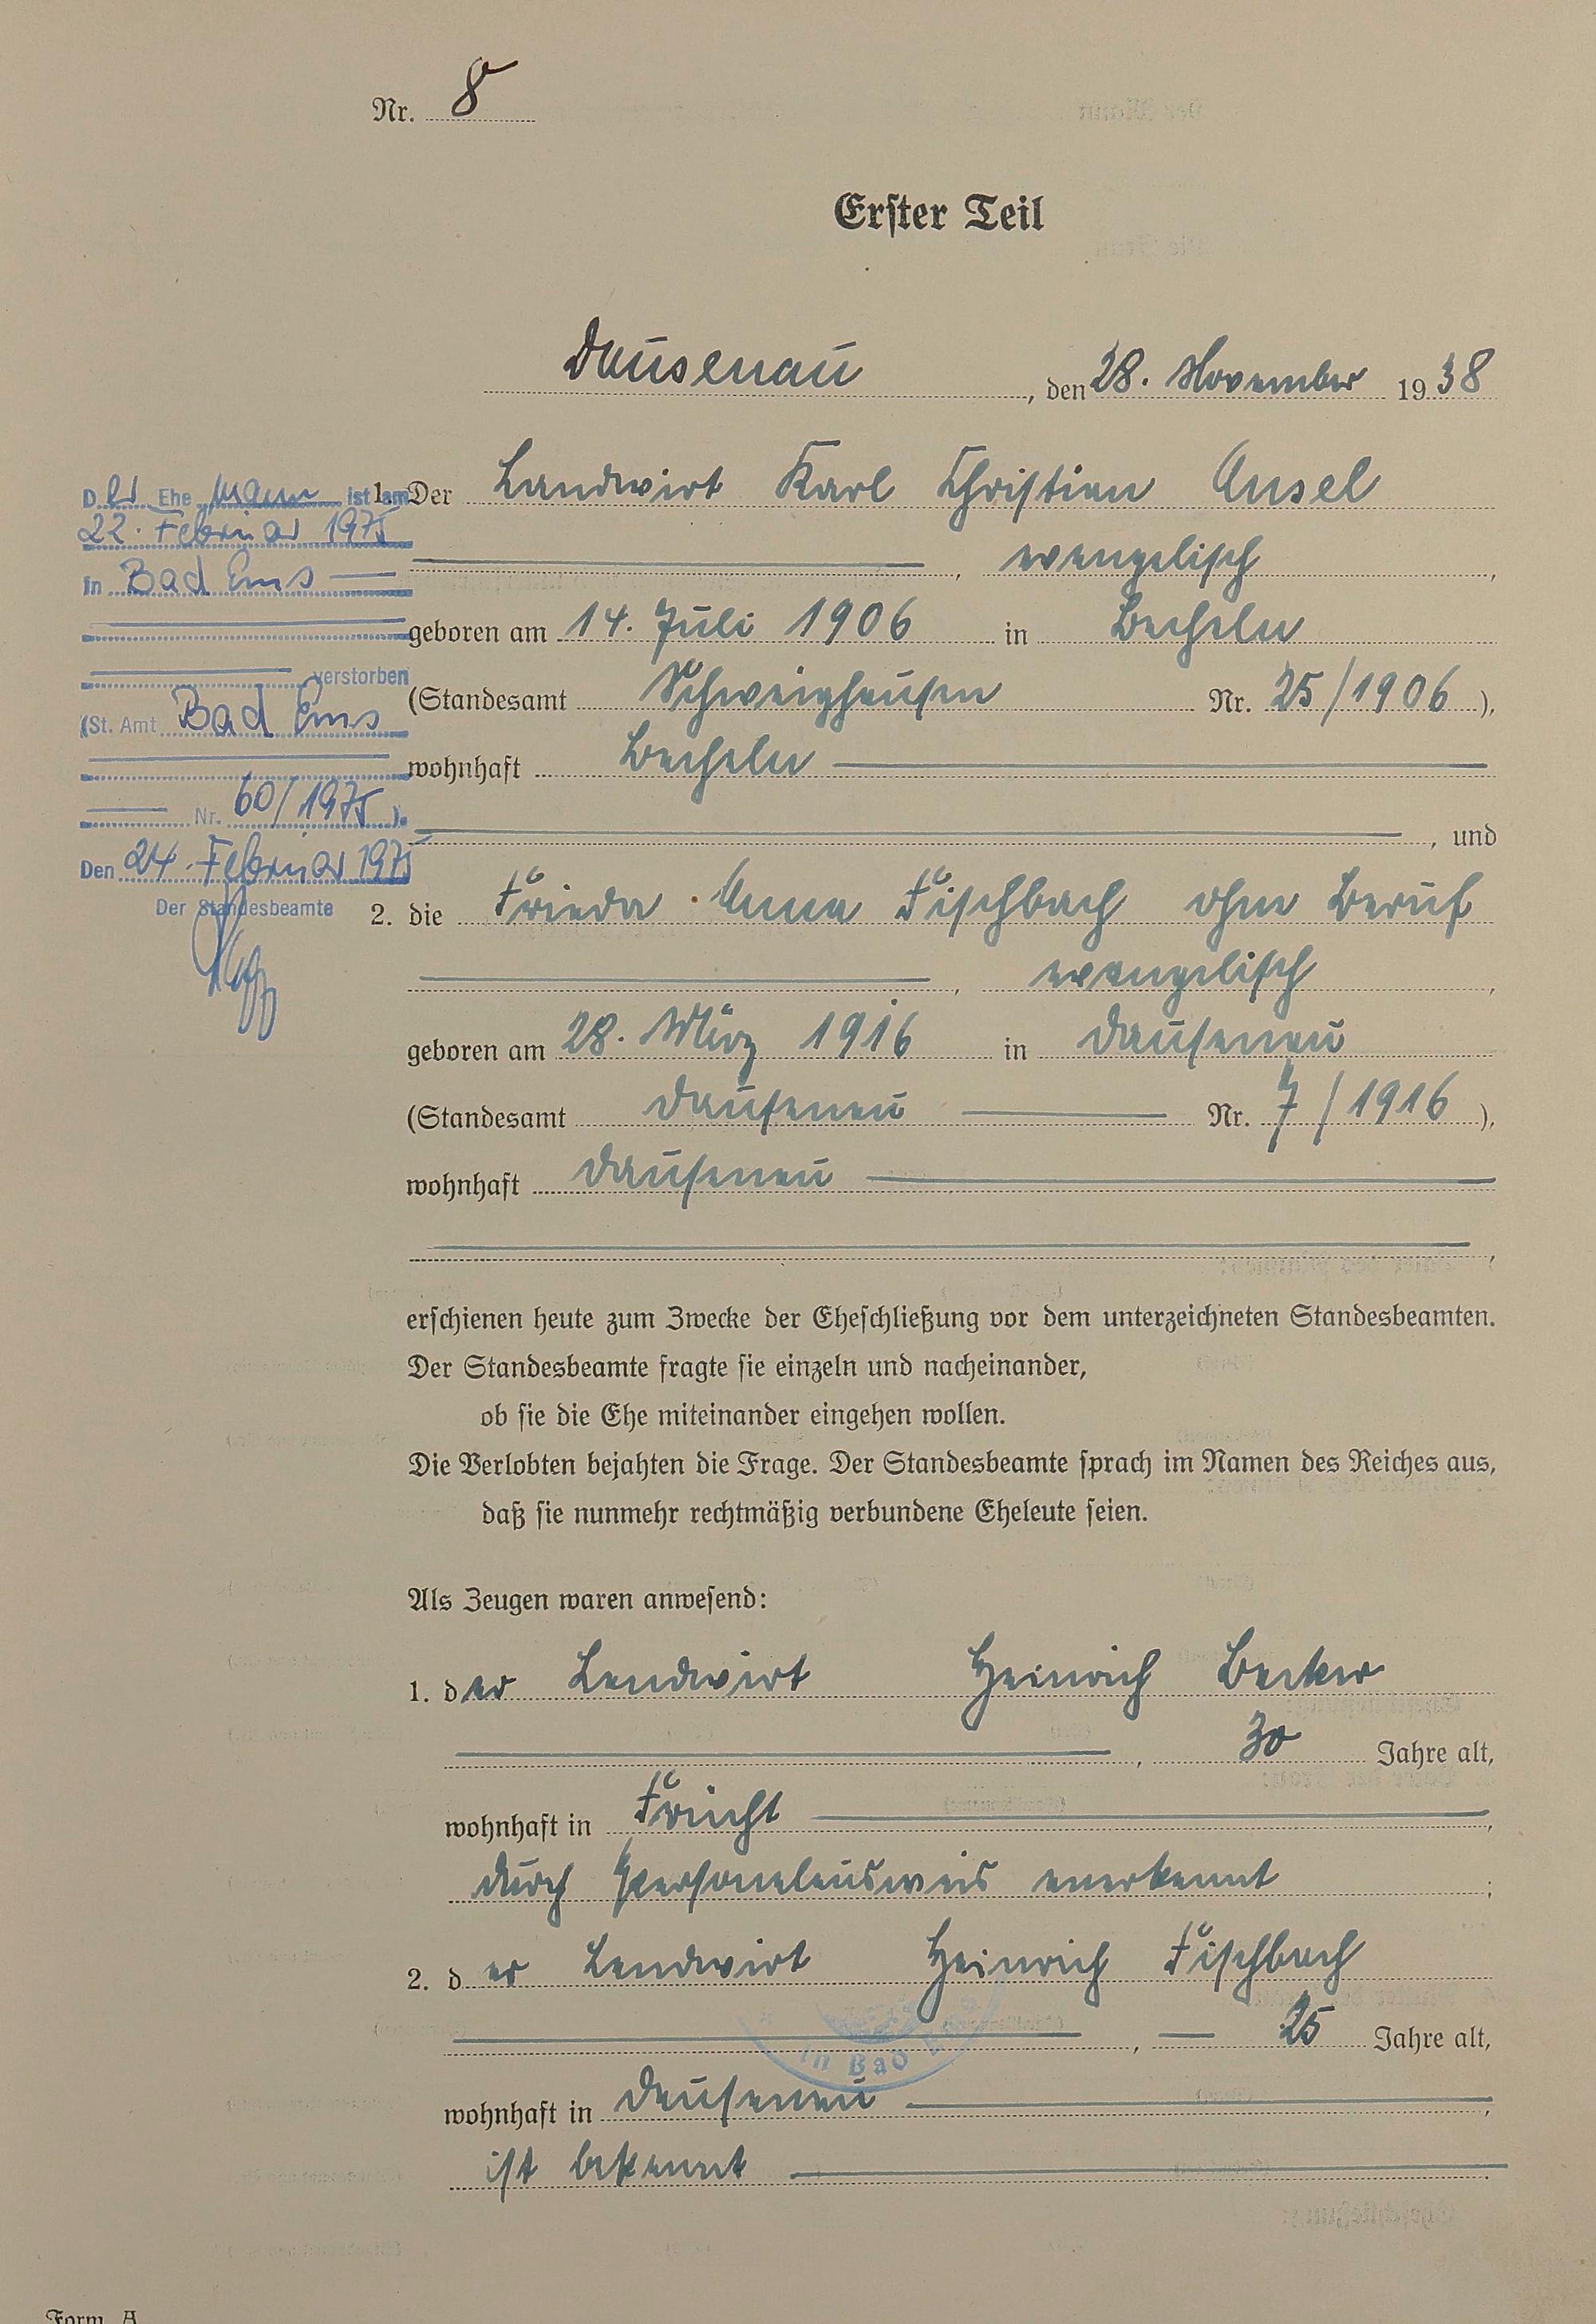 Nr. 8
Erster Teil
Dausenau, den 28. November 1938
1. Der Landwirt Karl Christian Ansel
, evangelisch,
geboren am 14. Juli 1906 in Becheln
(Standesamt Schweighausen Nr. 25/1906),
wohnhaft Becheln
, und
2. die Frieda Anna Fischbach ohne Beruf
, evangelisch,
geboren am 28. März 1916 in Dausenau
(Standesamt Dausenau Nr. 7/1916),
wohnhaft Dausenau
,
erschienen heute zum Zwecke der Eheschließung vor dem unterzeichneten Standesbeamten.
Der Standesbeamte fragte sie einzeln und nacheinander,
ob sie die Ehe miteinander eingehen wollen.
Die Verlobten bejahten die Frage. Der Standesbeamte sprach im Namen des Reiches aus,
daß sie nunmehr rechtmäßig verbundene Eheleute seien.
Als Zeugen waren anwesend:
1. der Landwirt Heinrich Becker
, 30 Jahre alt,
wohnhaft in Frücht,
durch Personalausweis anerkannt;
2. der Landwirt Heinrich Fischbach
, 25 Jahre alt,
wohnhaft in Dausenau,
ist bekannt.
in Bad
Form. A
Der Ehemann ist am
22. Februar 1975
in Bad Ems
verstorben
(St. Amt Bad Ems
Nr. 60/1975).
Den 24. Februar 1975
Der Standesbeamte